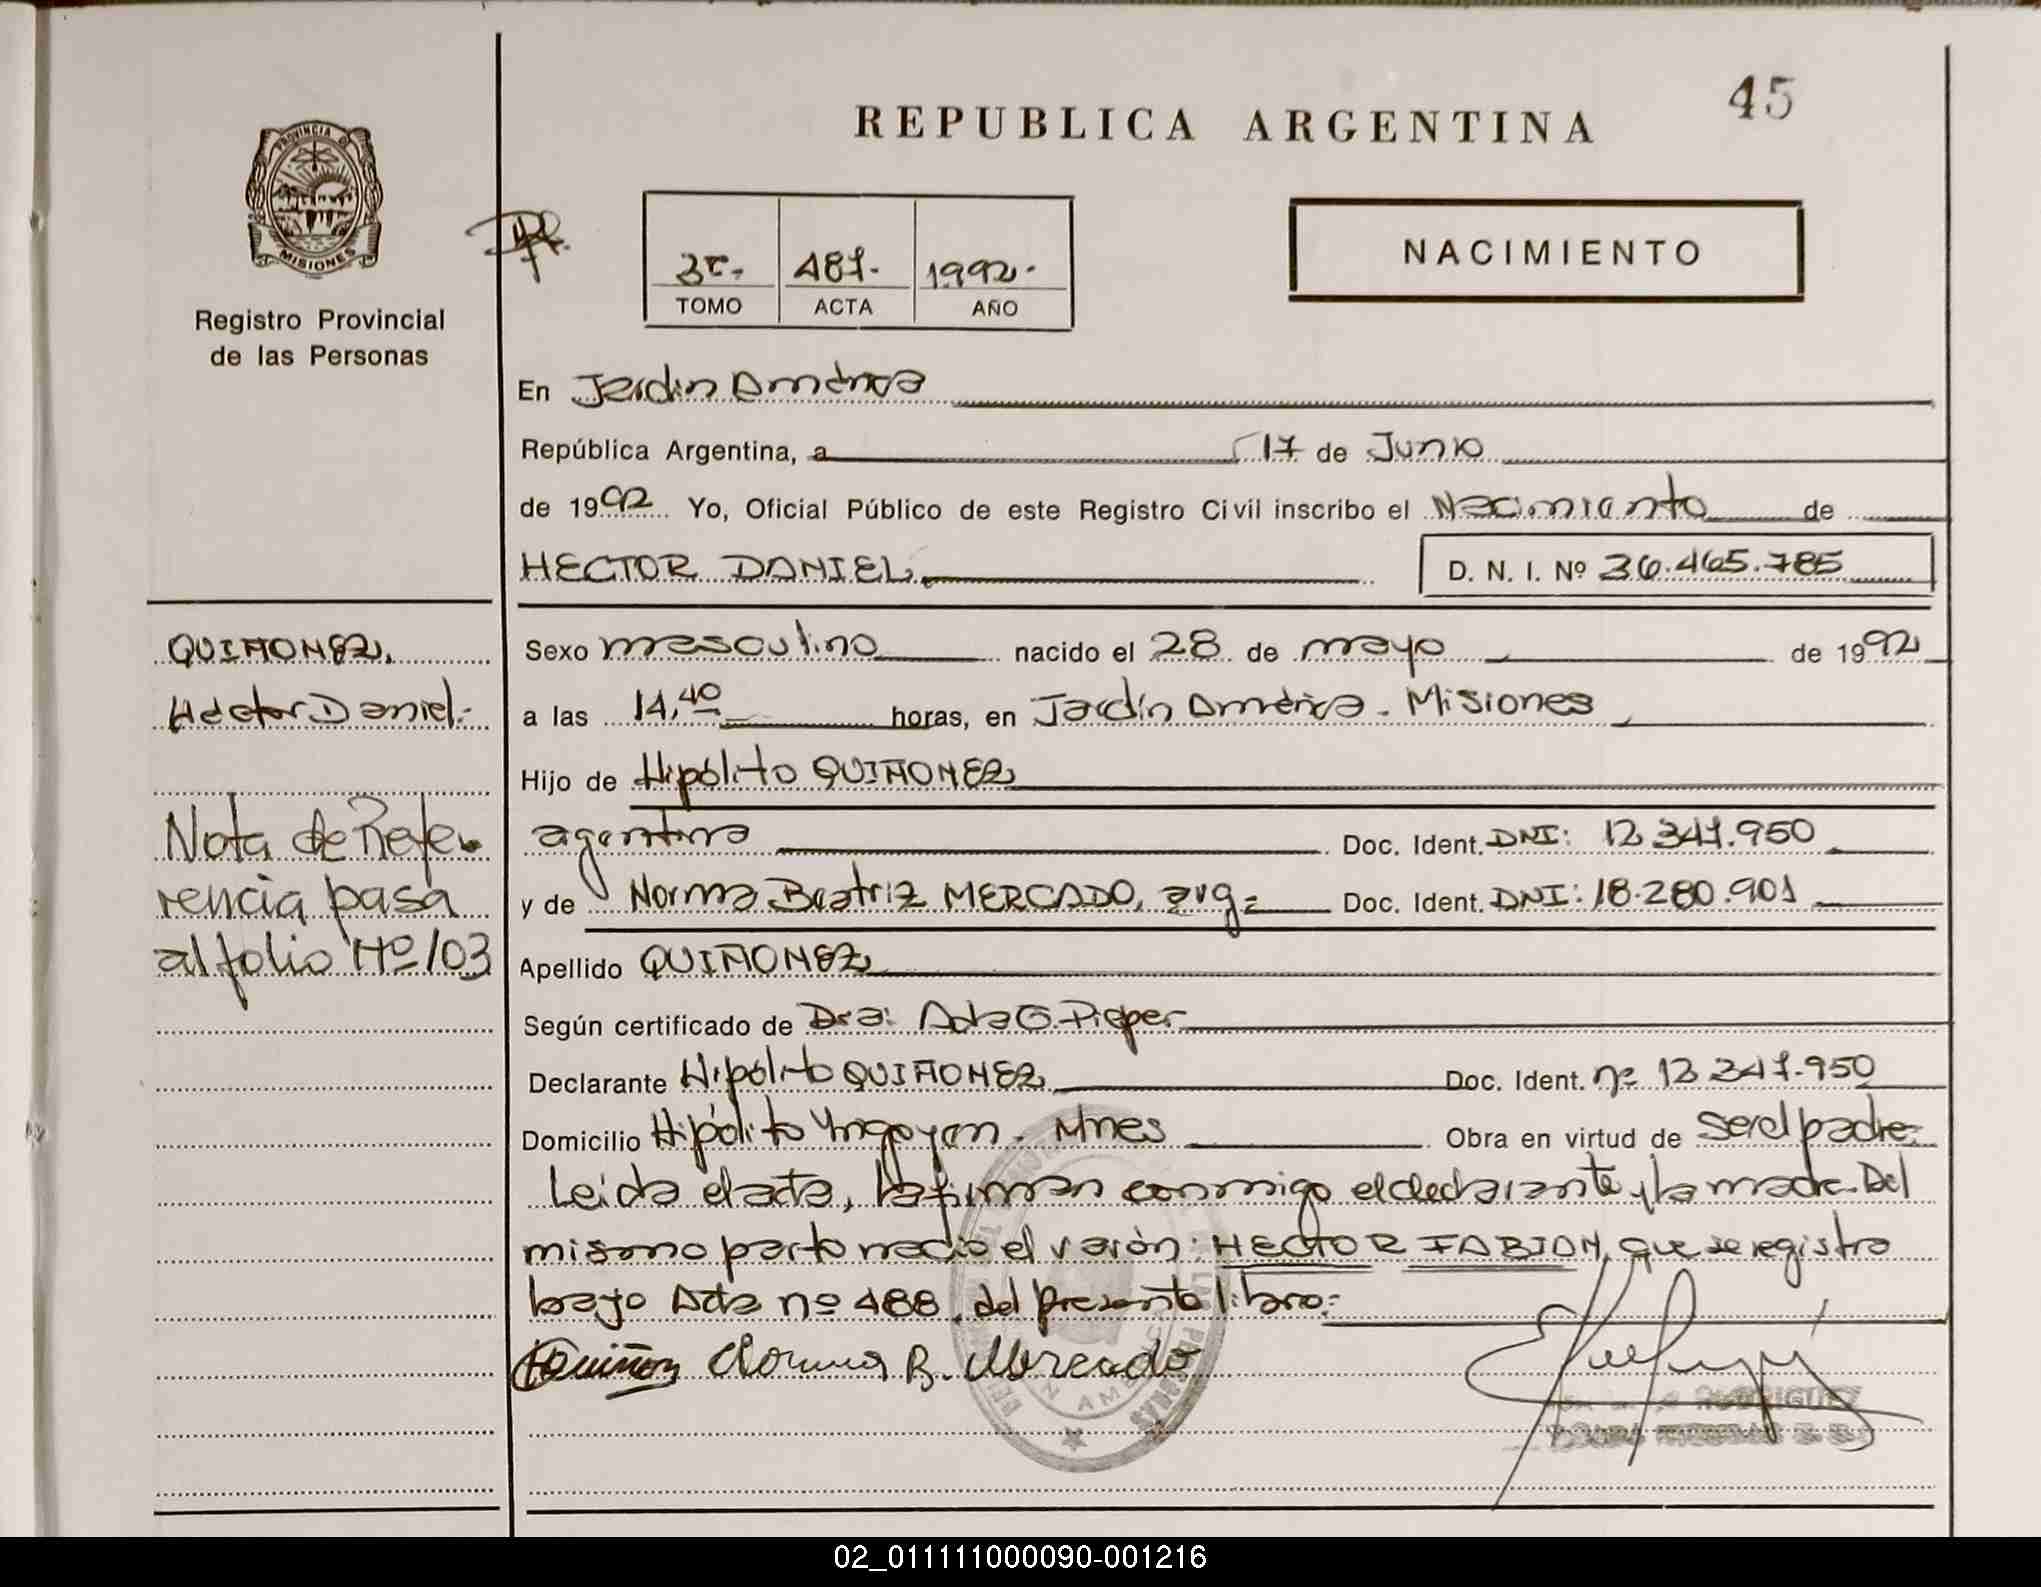 45
REPUBLICA ARGENTINA
PROVINCIA DE
MISIONES
Registro Provincial
de las Personas
487.
1992.
TOMO
ACTA
AÑO
NACIMIENTO
En Jardin América
República Argentina, a 17 de Junio
de 1992 Yo, Oficial Público de este Registro Civil inscribo el Nacimiento de
HECTOR DANIEL
D. N. I. Nº 36.465.785
QUIÑONEZ,
Héctor Daniel.-
Sexo masculino nacido el 28 de mayo de 1992
a las 14,40 horas, en Jardín América. Misiones
Hijo de Hipólito QUIÑONEZ
Nota de Refe-
rencia pasa
al folio Nº 103
agentina Doc. Ident. DNI: 12.347.950
y de Norma Beatriz MERCADO, arg= Doc. Ident. DNI: 18.280.901
Apellido QUIÑONEZ
Según certificado de Dra: Ada G. Pieper
Declarante Hipólito QUIÑONEZ Doc. Ident. nº 12.347.950
Domicilio Hipólito Yrigoyen. Mnes Obra en virtud de ser el padre.
Leida el acta, la firman conmigo el declarante y la madre. Del
mismo parto nació el varón: HECTOR FABIAN, que se registra
bajo Acta nº 488. del presente libro.-
Quiñon Norma B. Mercado
RODRIGUEZ
02_011111000090-001216